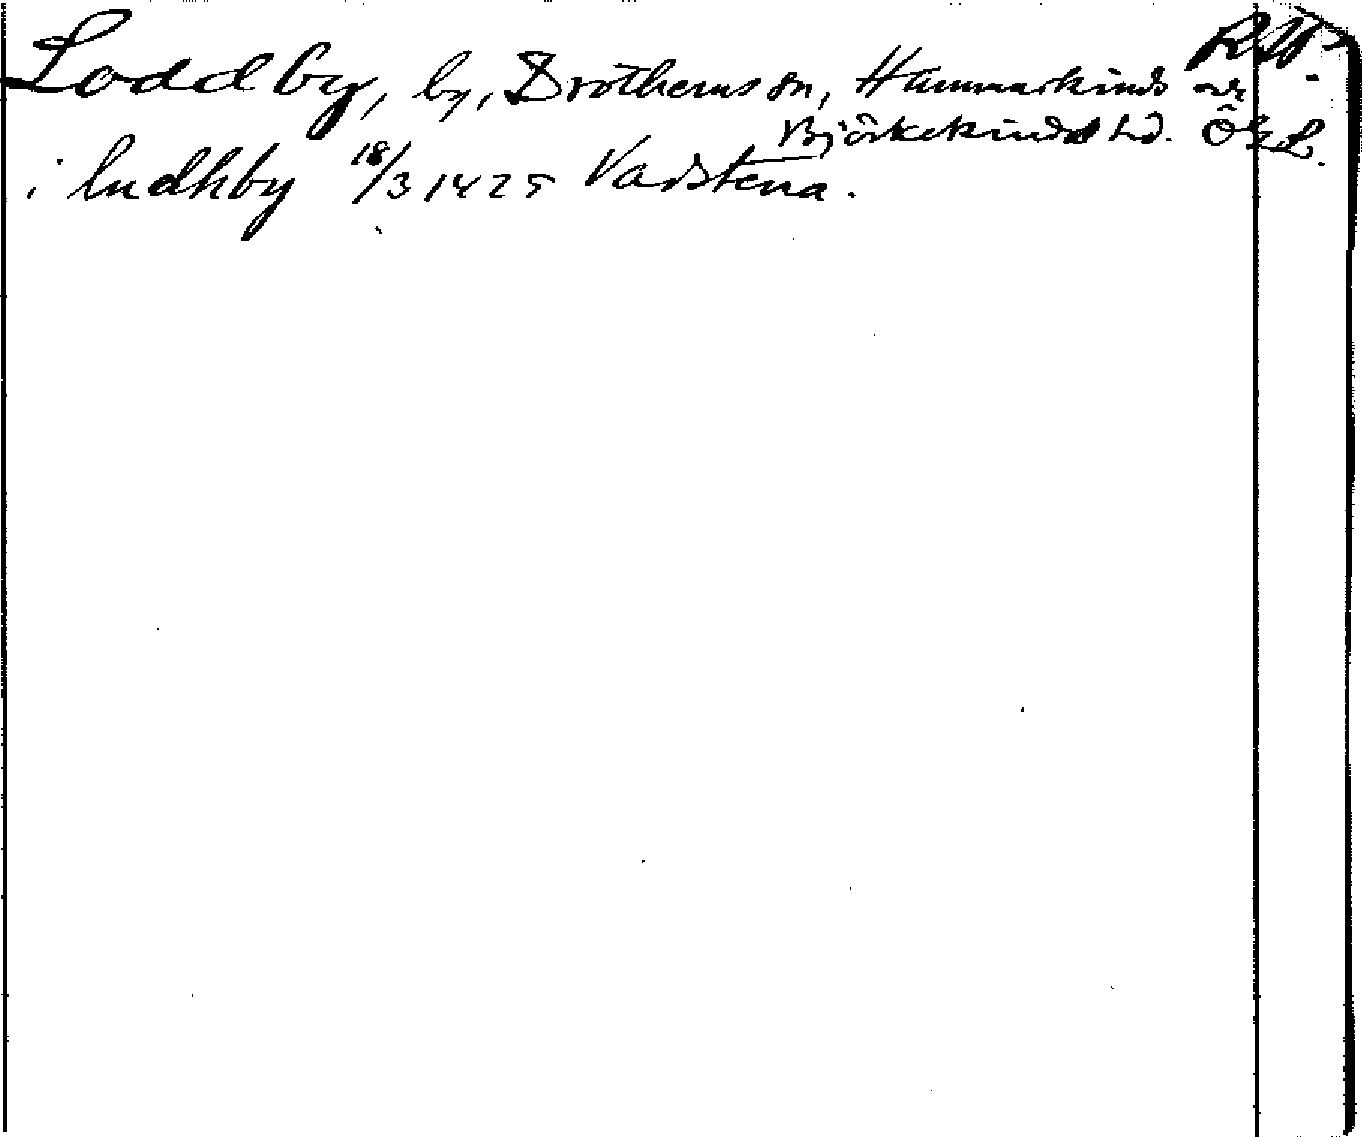 RA.
Loddby, by, Drothems sn, Hammarkinds och
Björkekinds hd. Ög L.
i ludhby 18/3 1425 Vadstena.